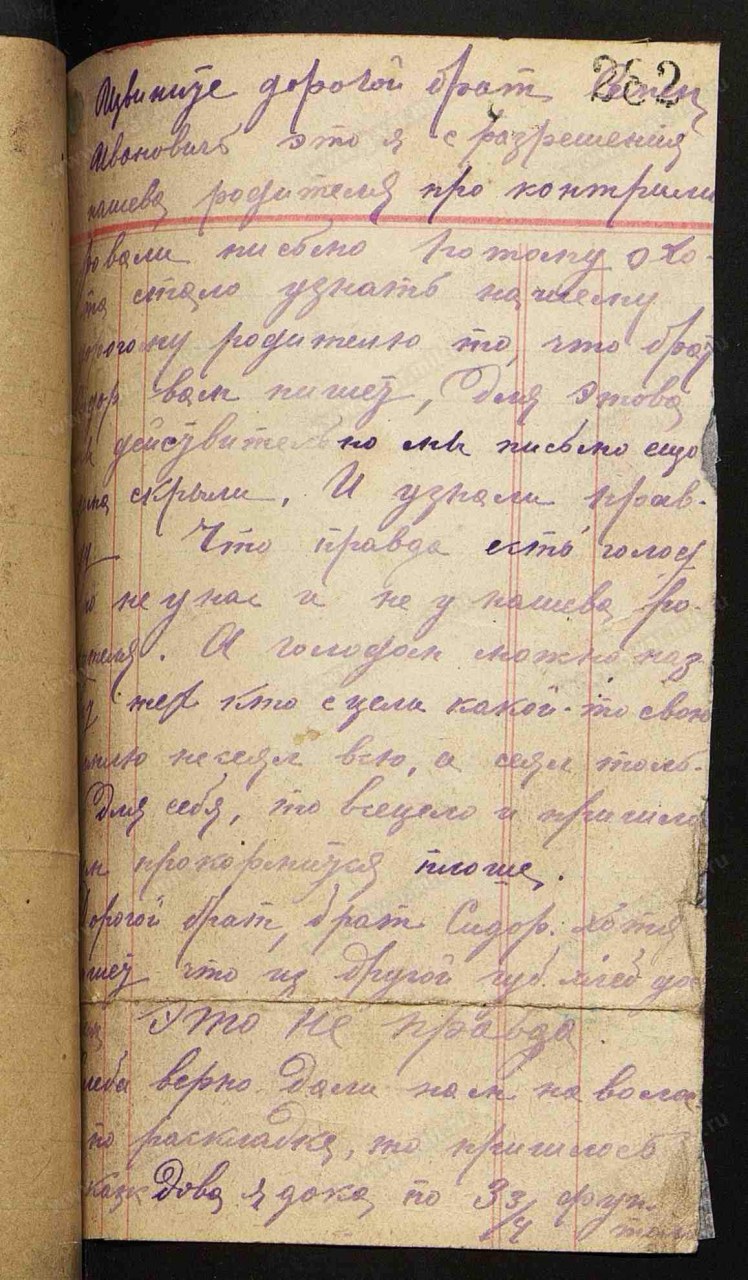 262
Извините дорогой брат
Ивановичь это я с разрешения
нашева родителя про контрыли
ровали письмо потому охо-
та стало узнать нашему
дорогому родителю то, что брат
Сидор вам пишет, для этова
действительно мы письмо ещо
скрыли. И узнали прав-
ду Что правда есть голод
но не у нас и не у нашева ро-
дителя. А голодом можно наз
нет кто с цели какой-то свою
землю несеял всю, а сеял толь-
для себя, то всецело и пришло
им прокормится площе.
Дорогой брат, брат Сидор. хотя
пишет что из другой губ. хлеб да
Это не правда
хлеба верно дали нам на волос
по раскладка, то пришлось
каждова я дока по 3 3/4 фун.